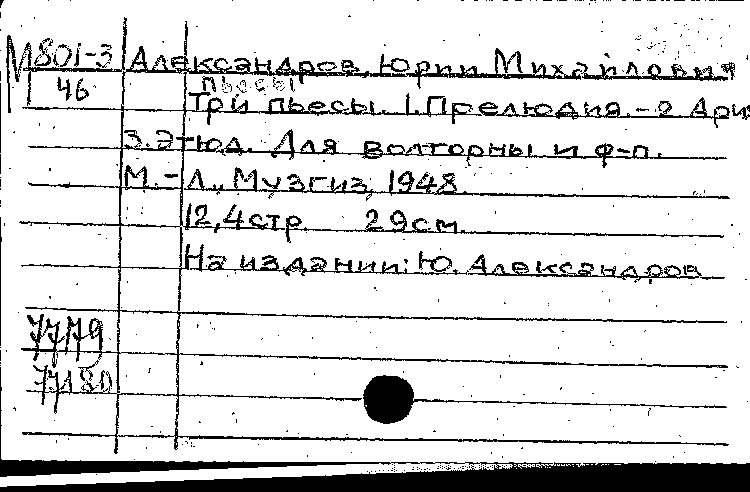 М801-3 Александров, Юрий Михайлович
46 пьесы
Три пьесы. 1. Прелюдия. - 2 Ари
3. Этюд. Для волторны и ф-п.
М. - Л., Музгиз, 1948.
12,4 стр. 29 см.
На издании: Ю. Александров
77179
77180